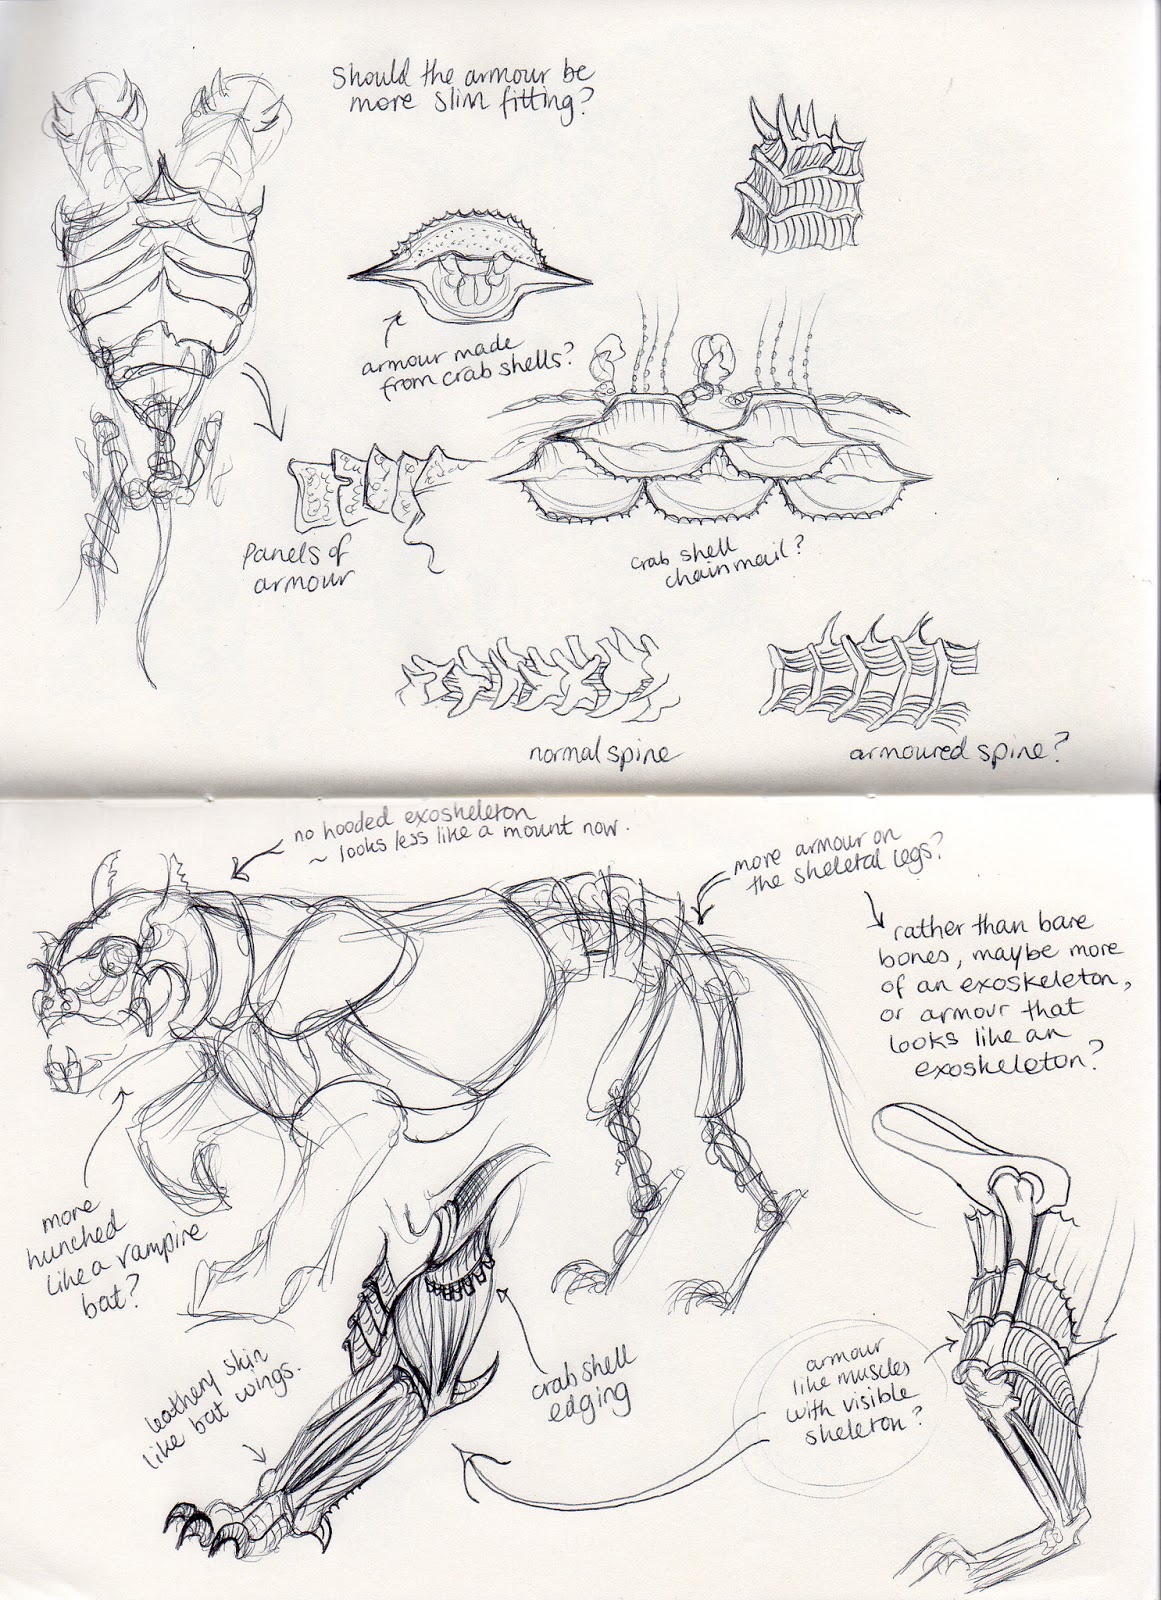 Should the armour be
more slim fitting?
armour made
from crab shells?
Panels of
armour
crab shell
chainmail?
normal spine
armoured spine?
no hooded exoskeleton
~ looks less like a mount now.
more armour on
the skeletal legs?
rather than bare
bones, maybe more
of an exoskeleton,
or armour that
looks like an
exoskeleton?
more
hunched
like a vampire
bat?
leathery skin
like bat wings.
crab shell
edging
armour
like muscles
with visible
skeleton?